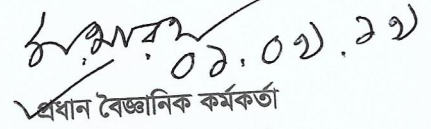 ০১.০৮.১৮
প্রধান বৈজ্ঞানিক কর্মকর্তা